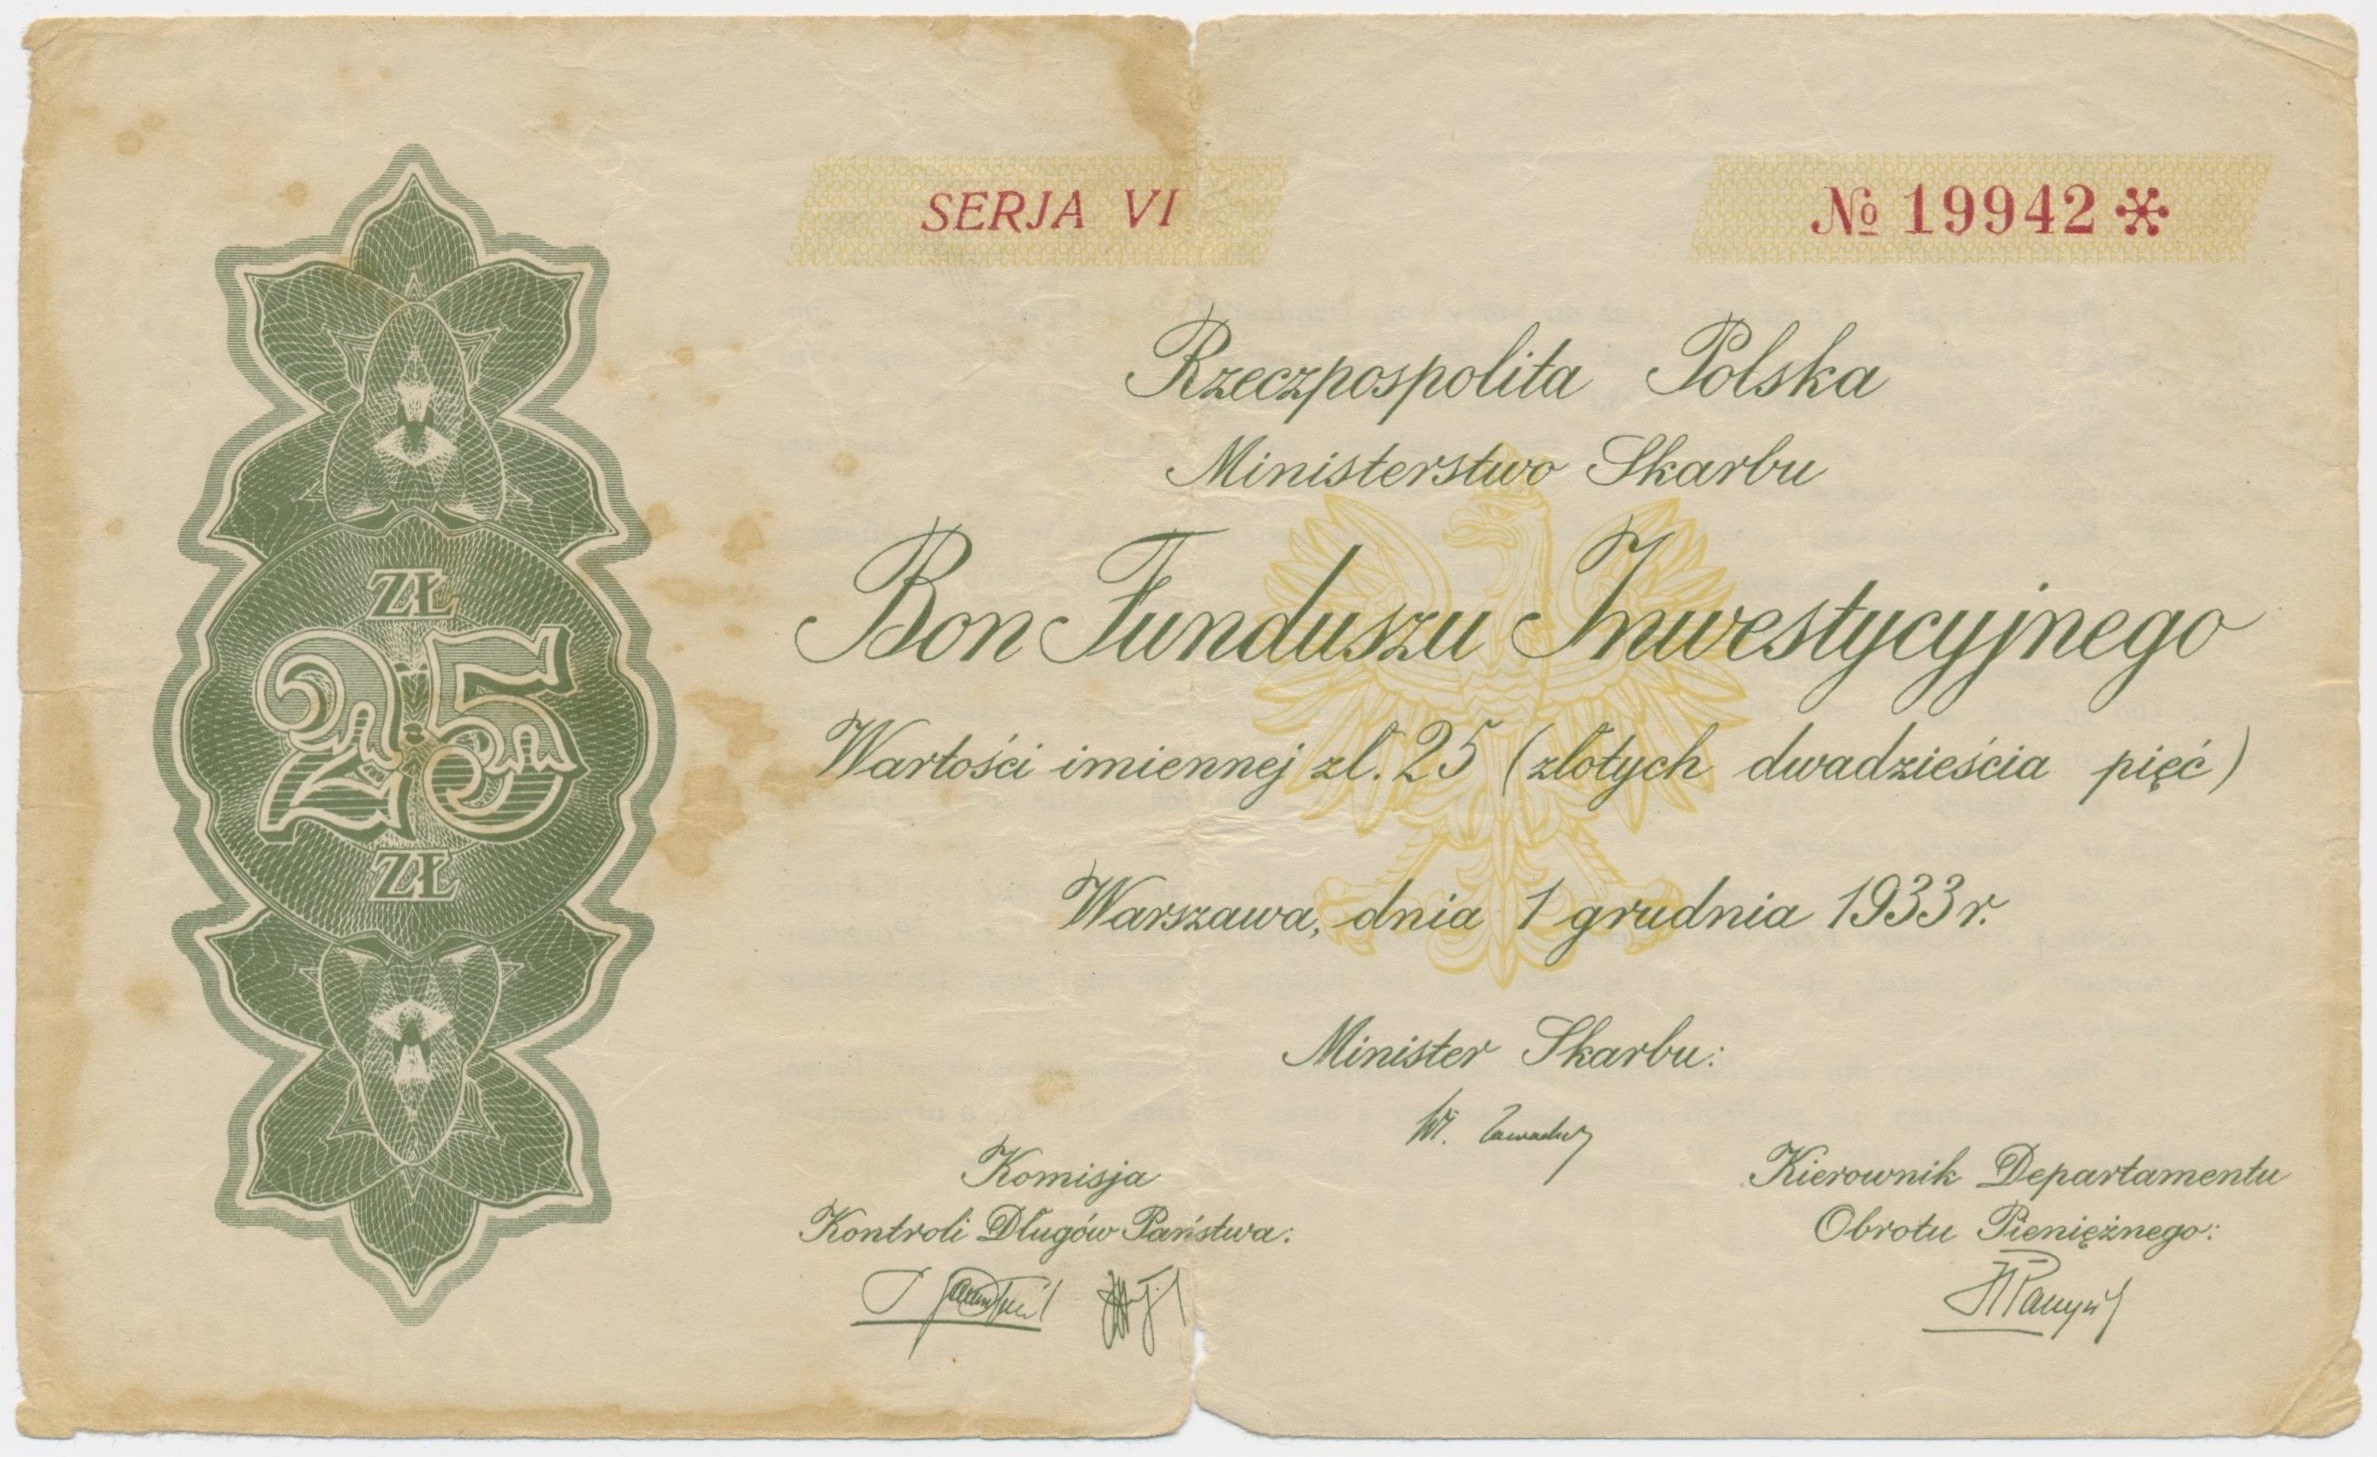 SERJA VI
№ 19942
Rzeczpospolita Polska
Ministerstwo Skarbu
Bon Funduszu Inwestycyjnego
Wartości imiennej zł. 25 (złotych dwadzieścia pięć)
Warszawa, dnia 1 grudnia 1933 r.
Minister Skarbu:
Komisja
Kontroli Długów Państwa:
Kierownik Departamentu
Obrotu Pieniężnego:
ZŁ
25
ZŁ